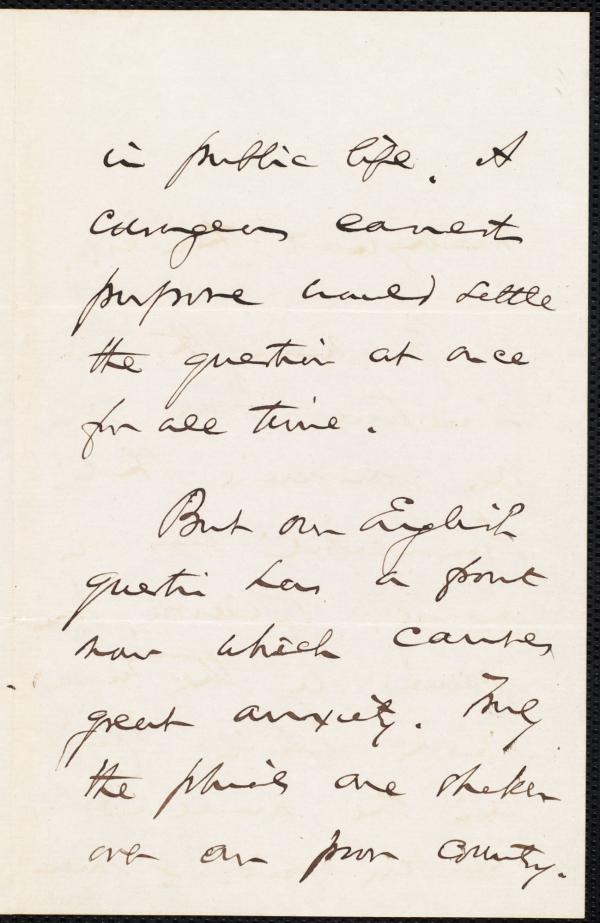 in public life. A
courageous earnest
purpose would settle
the question at once
for all time.
But our English
question has a front
now which causes
great anxiety. Truly
the phials are shaken
over our poor country.